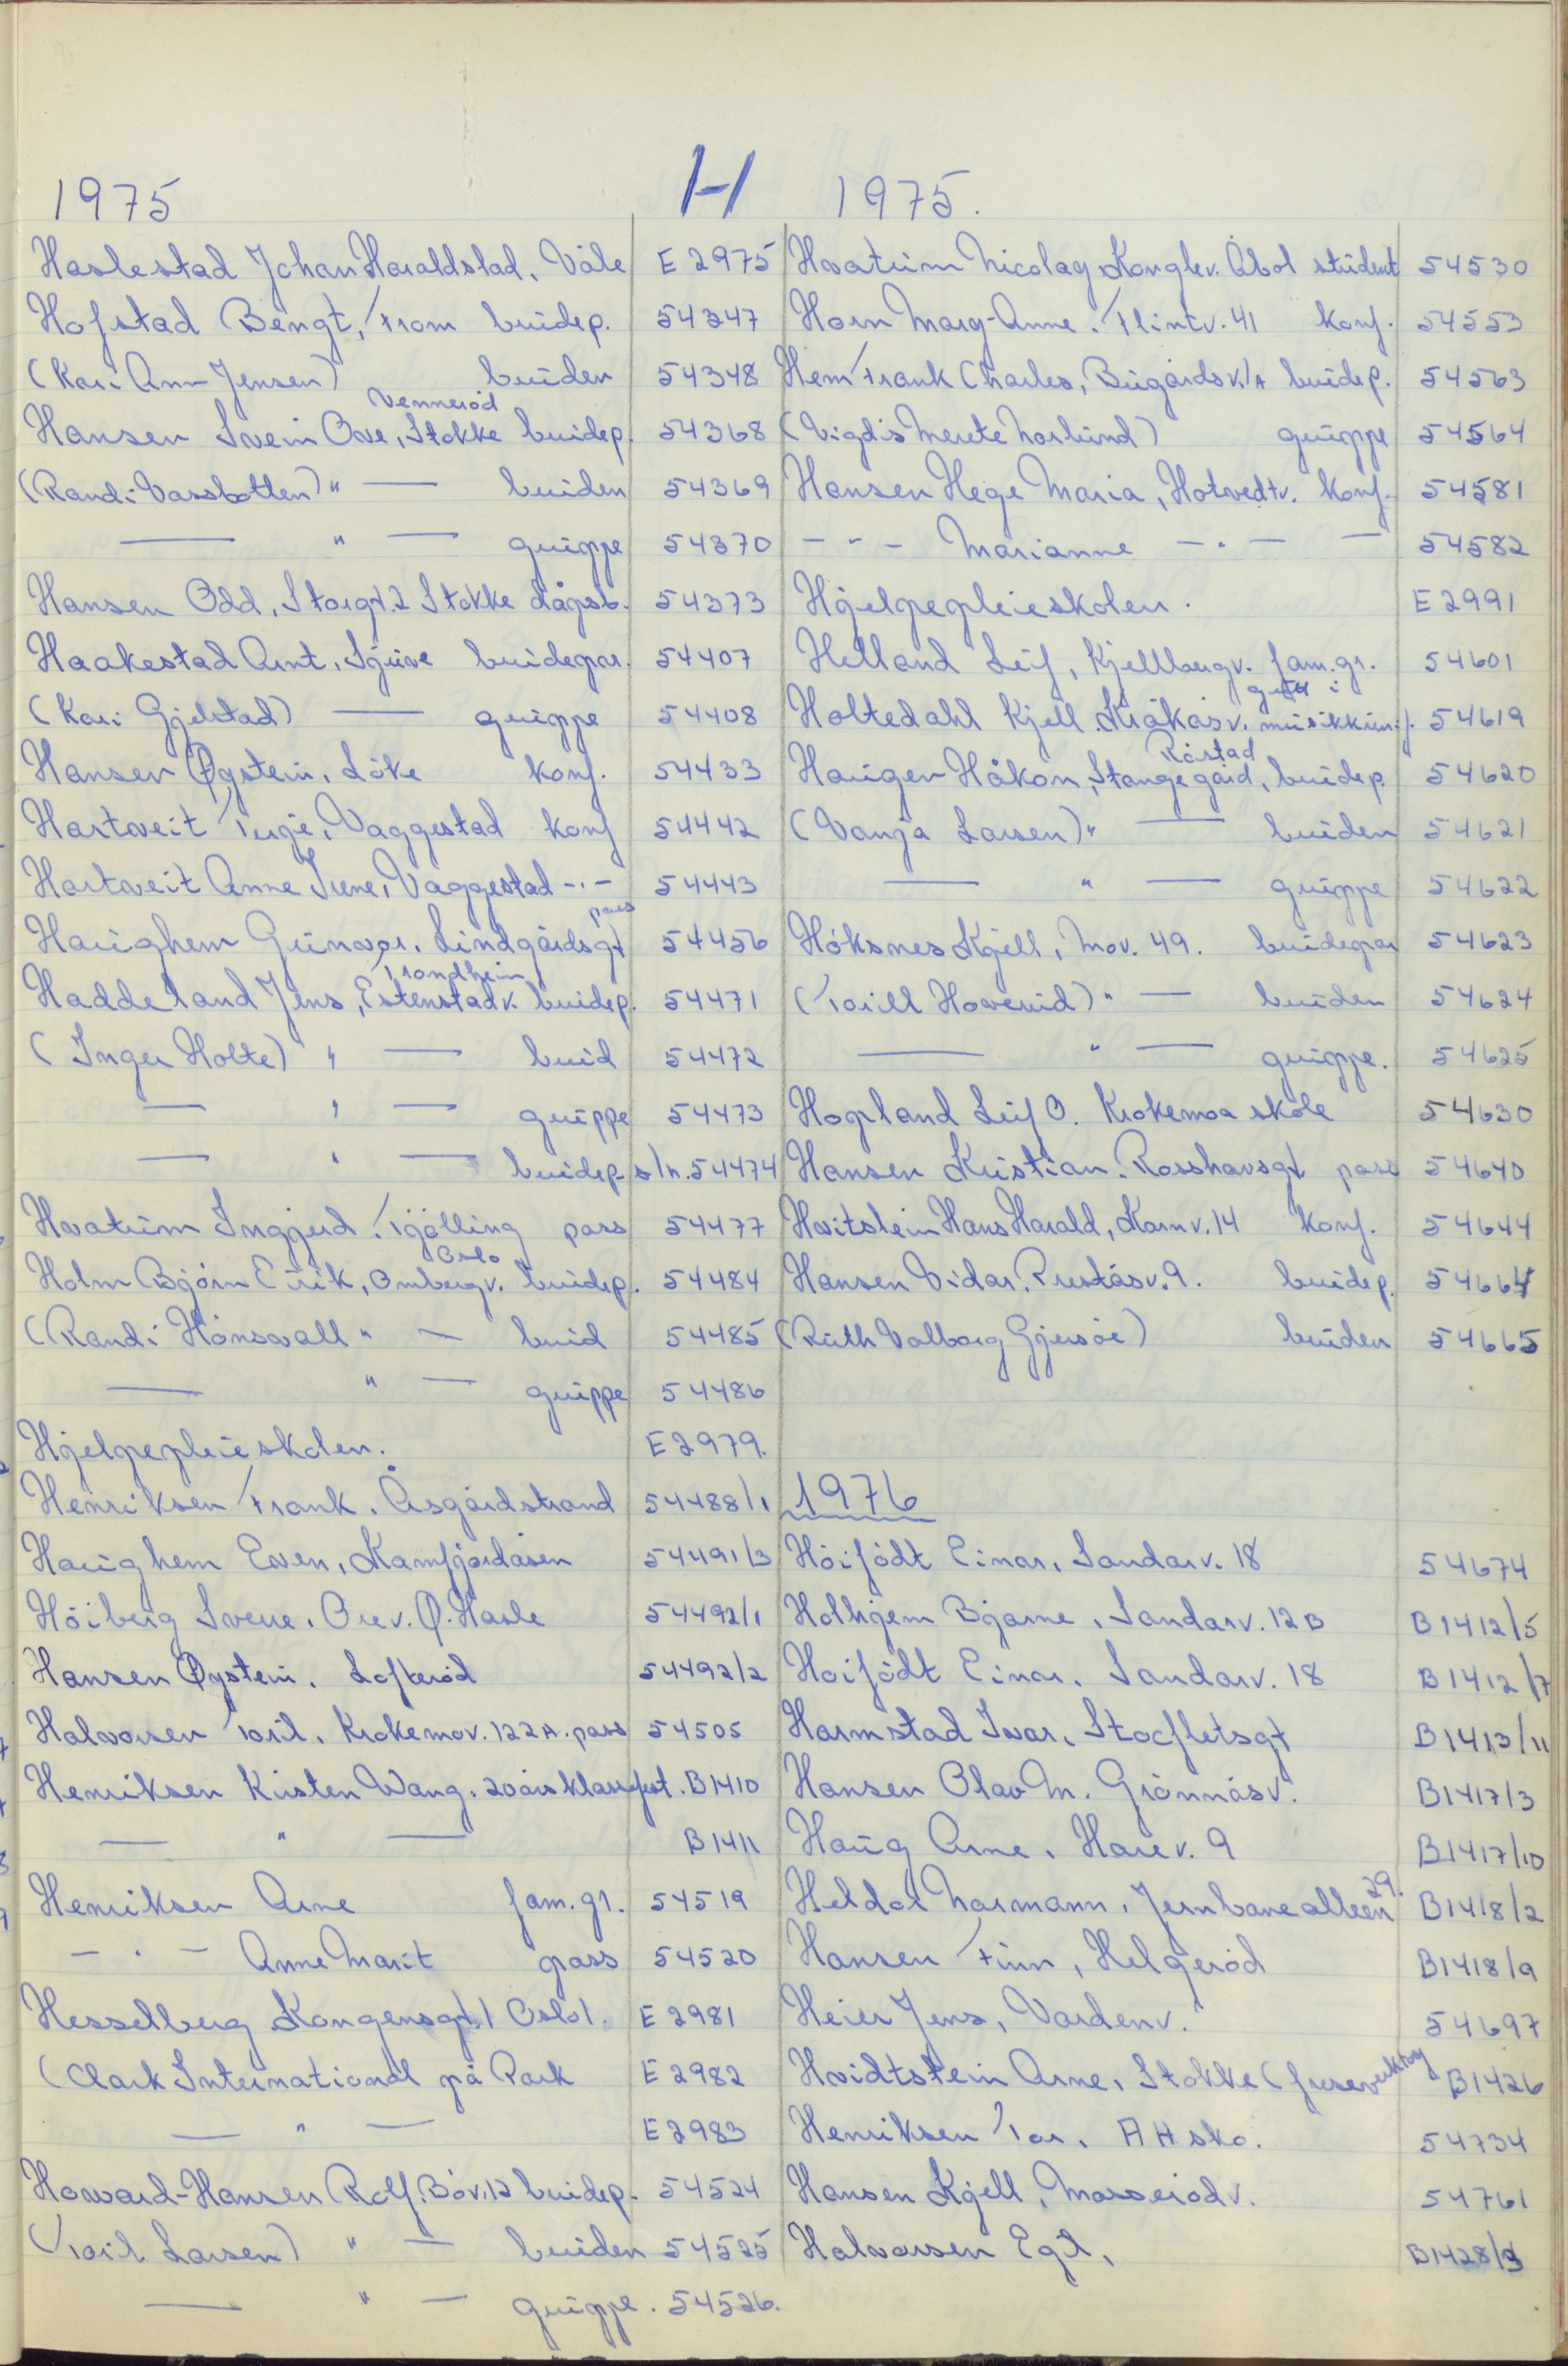 H
1975
Haslestad Johan Haraldstad, Våle E 2975
Hofstad Bengt, Fram brudep. 54347
(Kari Ann Jensen) bruden 54348
Vennerød
Hansen Svein Ove, Stokke brudep. 54368
(Randi Vassbotten) " — bruden 54369
— " — gruppe 54370
Hansen Odd, Storgt. 2 Stokke dåpsb. 54373
Haakestad Arnt, Sjuve brudepar. 54407
(Kari Gjelstad) — gruppe 54408
Hansen Øystein, Løke konf. 54433
Hartveit Terje, Vaggestad konf 54442
Hartveit Anne Irene, Vaggestad -"- 54443
pass
Haughem Gunvor. Lindgårdsgt 54456
Trondheim
Haddeland Jens, Estenstadv. brudep. 54471
(Inger Holte) " — brud 54472
— " — gruppe 54473
— " — brudep s/h. 54474
Hvatum Ingjerd. Tjølling pass 54477
Oslo
Holm Bjørn Eirik, Ombergv. brudep. 54484
(Randi Hönsvall " — brud 54485
— " — gruppe 54486
Hjelpepleieskolen. E 2979.
Henriksen Frank. Åsgårdstrand 54488/1
Haughem Even, Kamfjordåsen 54491/3
Höiberg Sverre. Orev. Ø. Hasle 54492/1
Hansen Øystein. Lofterød 54492/2
Halvorsen Toril. Krokemov. 122A. pass 54505
Henriksen Kirsten Wang. 20års klassefest. B1410
— " — B1411
Henriksen Arne fam. gr. 54519
- " - Anne Marit pass 54520
Hesselberg Kongensgt. 1 Oslo 1. E 2981
(Clark International på Park E 2982
— " — E 2983
Havard-Hansen Rolf. Bøv. 12 brudep. 54524
(Toril Larsen) " — bruden 54525
— " — gruppe. 54526.
1975.
Hvatum Nicolay Konglev. Åbol student 54530
Horn Mary-Anne. Flintv. 41 konf. 54553
Hem Frank Charles, Bugårdsv. 1A brudep. 54563
(Vigdis Merete Norlund) gruppe 54564
Hansen Hege Maria, Hotvedtv. konf. 54581
- " - Marianne - " - — 54582
Hjelpepleieskolen. E 2991
Helland Leif, Kjellbergv. fam. gr. 54601
gutt i
Holtedahl Kjell. Kråkåsv. musikkunif. 54619
Råstad
Haugen Håkon, Stangegård, brudep. 54620
(Vanja Larsen) " — bruden 54621
— " — gruppe 54622
Höksnes Kjell, Mov. 49. brudepar 54623
(Torill Hoverud) " — bruden 54624
— " — gruppe. 54625
Hopland Leif O. Krokemoa skole 54630
Hansen Kristian. Rosshavsgt pass 54640
Hvitstein Hans Harald, Kornv. 14 konf. 54644
Hansen Vidar. Preståsv. 9. brudep. 54664
(Ruth Valborg Gjersöe) bruden 54665
1976
Höifödt Einar, Sandarv. 18 54674
Holhjem Bjarne, Sandarv. 12B B1412/5
Hoifödt Einar. Sandarv. 18 B1412/7
Harmstad Ivar. Stocfletsgt B1413/11
Hansen Olav M. Grönnåsv. B1417/3
Haug Arne. Harev. 9 B1417/10
29.
Heldal Normann, Jernbanealleen B1418/2
Hansen Finn, Helgerød B1418/9
Heier Jens, Vardenv. 54697
Hvidtstein Arne, Stokke (freseverktøy B1426
Henriksen Tor. AH sko. 54734
Hansen Kjell, Masserødv. 54761
Halvorsen Egil, B1428/3